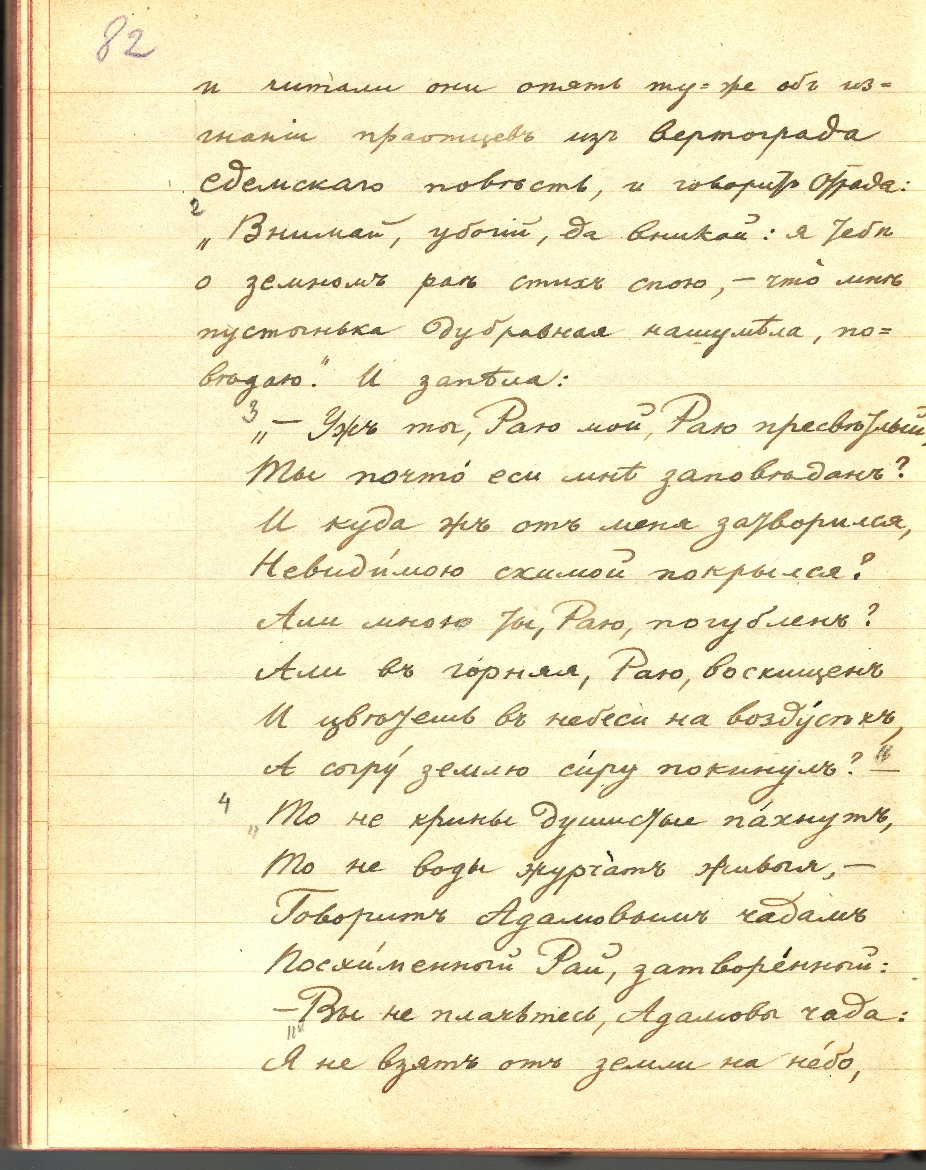 82
и читали они опять ту-же объ из=
гнаніи праотцевъ изъ вертограда
едемскаго повѣсть, и говоритъ Отрада:
2
„Внимай, убогій, да вникай: я тебѣ
о земномъ раѣ стихъ спою, — что̀ мнѣ
пустынька дубравная нашумѣла, по=
вѣдаю." И запѣла:
3
„— Ужъ ты, Раю мой, Раю пресвѣтлый,
Ты почто́ еси мнѣ заповѣданъ?
И куда жъ отъ меня затворился,
Невиди́мою схимой покрылся?
Али мною ты, Раю, погубленъ?
Али въ го́рняя, Раю, восхищенъ
И цвѣтешь въ небеси на возду́сѣхъ,
А сыру́ землю си́ру покинулъ?" —
4
„То не крины душистые па́хнутъ,
То не воды журча́тъ живыя, —
Говоритъ Адамовымъ чадамъ
Посхи́менный Рай, затворе́нный:
— „Вы не плачьтесь, Адамовы чада:
Я не взятъ отъ земли на не́бо,